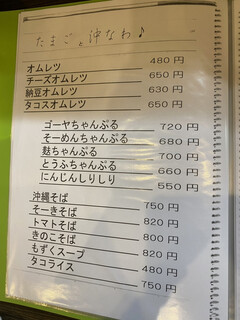 たまごと沖なわ♪
オムレツ 480円
チーズオムレツ 650円
納豆オムレツ 630円
タコスオムレツ 650円
ゴーヤちゃんぷる 720円
そーめんちゃんぷる 680円
麩ちゃんぷる 700円
とうふちゃんぷる 660円
にんじんしりしり 550円
沖縄そば 750円
そーきそば 820円
トマトそば 800円
きのこそば 820円
もずくスープ 480円
タコライス 750円